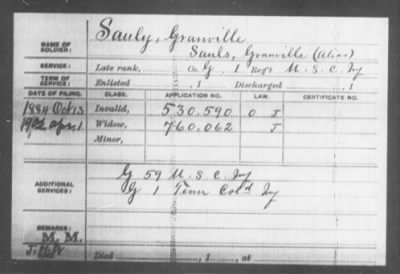 NAME OF SOLDIER: Sauly, Granville
Sauls, Granville (Alias)
SERVICE: Late rank, Co. G, 1 Reg't U.S.C. Inf
TERM OF SERVICE: Enlisted , 1 Discharged , 1
DATE OF FILING. CLASS. APPLICATION NO. LAW. CERTIFICATE NO.
1884 Oct 13 Invalid, 530.590 O J
1902 Apr 1 Widow, 760.062 J
Minor,
ADDITIONAL SERVICES: G 59 U.S.C. Inf
G 1 Tenn Col'd Inf
REMARKS: M. M.
Died , 1 , at